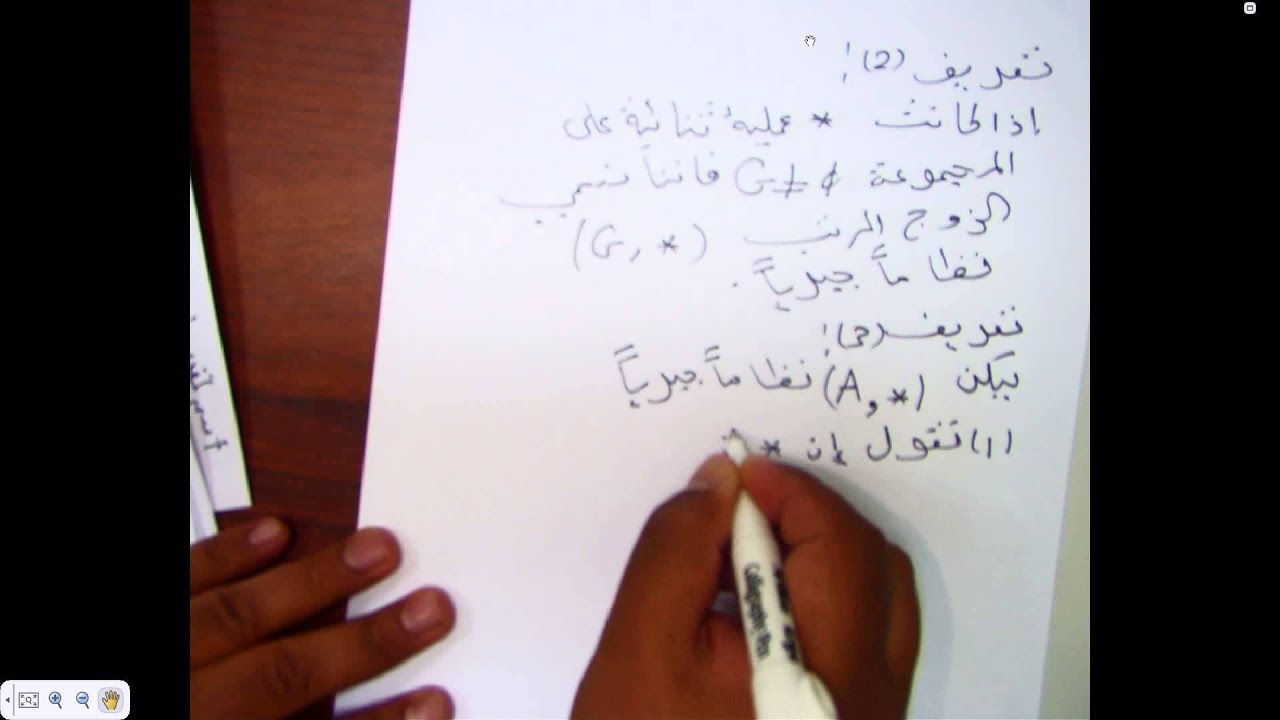 تعريف (2):
إذا كانت * عملية ثنائية على
المجموعة G ≠ ϕ فاننا نسمي
الزوج المرتب (G, *)
نظاماً جبرياً.
تعريف (3):
ليكن (A, *) نظاماً جبرياً
(1) نقول إن *
Calligraphy Pen